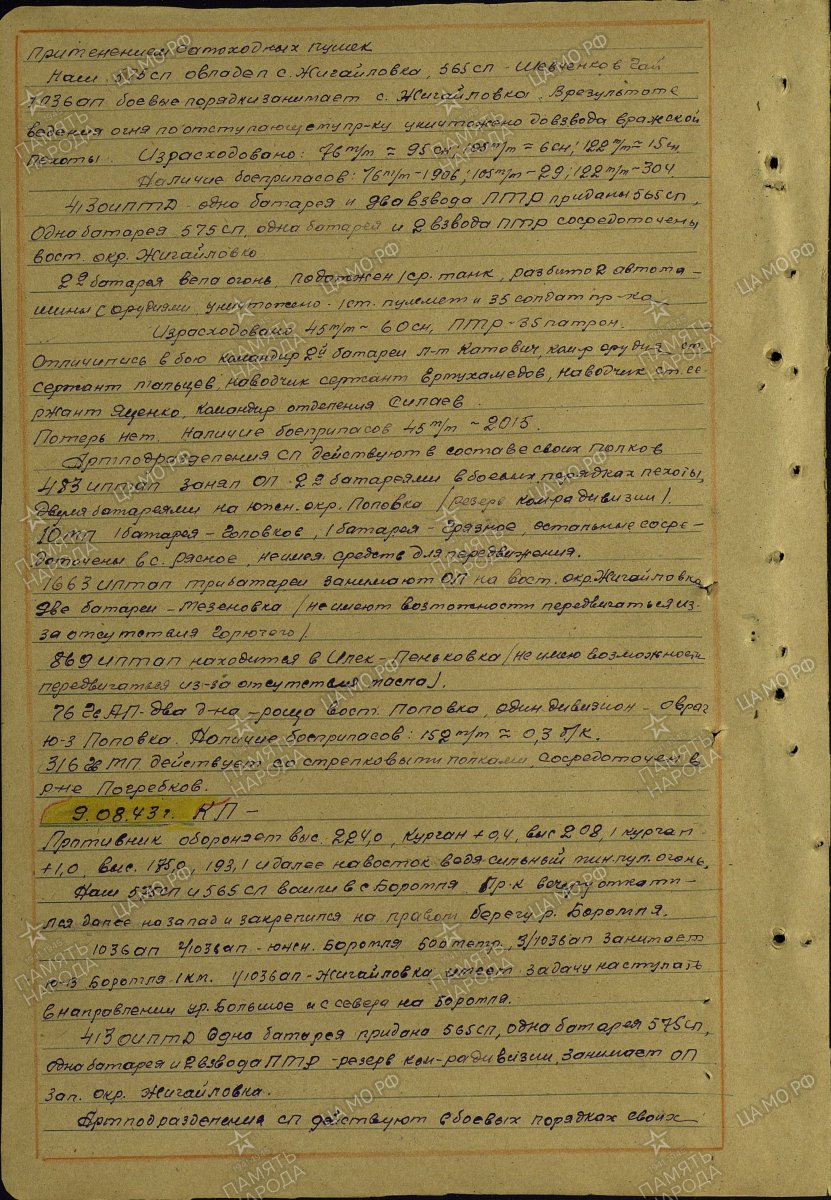 применением самоходных пушек
Наш 575сп овладел с. Жигайловка, 565сп - Шевченков Гай
1036ап боевые порядки занимает с. Жигайловка. В результате
ведения огня по отступающему пр-ку уничтожено до взвода вражской
пехоты. Израсходовано: 76 m/m = 95сн; 105 m/m = 6сн; 122 m/m = 15сн
Наличие боеприпасов: 76 m/m - 1906; 105 m/m - 29; 122 m/m - 304.
413 оиптд - одна батарея и два взвода ПТР приданы 565сп,
Одна батарея 575сп, одна батарея и 2 взвода ПТР сосредоточены
вост. окр. Жигайловка
2я батарея вела огонь, подожжен 1 ср. танк, разбито 2 автома-
шины с орудиями, уничтожено - 1 ст. пулмет и 35 солдат пр-ка
Израсходовано 45 m/m - 60сн, ПТР - 35 патрон.
Отличились в бою командир 2й батареи л-т Катович, ком-р орудия ст.
сержант Мальцев, наводчик сержант Ертухамедов, наводчик ст. се-
ржант Яценко, командир отделения Силаев.
Потерь нет. Наличие боеприпасов 45 m/m - 2015.
Артподразделения СП действуют в составе своих полков
483 иптап занял ОП 2я батареями в боевых порядках пехоты,
двумя батареями на южн. окр. Поповка /резерв ком-ра дивизии/.
10 мп 1 батарея - Головков, 1 батарея - Грязное, остальные сосре-
доточены в с. Рясное, не имея средств для передвижения.
1663 иптап три батареи занимают ОП на вост. окр. Жигайловка
две батареи - Мезеновка /не имеют возможности передвигаться из-
за отсутствия горючего/
869 иптап находится в Илек-Пеньковка /не имею возможности
передвигаться из-за отсутствия масла/.
76 Гв АП - два д-на - роща вост. Поповка, один дивизион - овраг
ю-з Поповка. Наличие боеприпасов: 152 m/m = 0,3 б/к.
316 гв МП действует со стрелковыми полками, сосредоточен в
р-не Погребков.
9.08.43 г. КП -
Противник обороняет выс. 224,0, курган +0,4, выс 208,1 курган
+1,0, выс. 175,0, 193,1 и далее на восток ведя сильный мин. пул. огонь,
Наш 575сп и 565 сп вошли в с Боромля. Пр-к вечеру откати-
лся далее на запад и закрепился на правом берегу р. Боромля.
1036 ап 2/1036ап - южн. Боромля 600 метр, 3/1036ап занимает
ю-в Боромля 1 км. 1/1036ап - Жигайловка имеет задачу наступать
в направлении ур. Большое и с севера на Боромля.
413 оиптд Одна батарея придана 565сп, одна батарея 575сп,
одна батарея и 2 взвода ПТР - резерв ком-ра дивизии, занимает ОП
зап. окр. Жигайловка.
Артподразделения СП действуют в боевых порядках своих